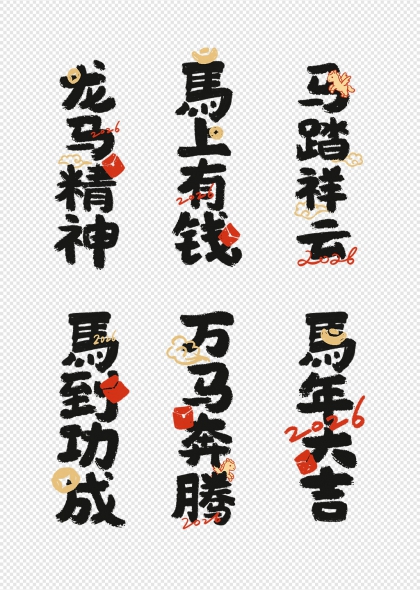 龙马精神
2026
馬上有钱
2026
马踏祥云
2026
馬到功成
2026
万马奔腾
2026
馬年大吉
2026